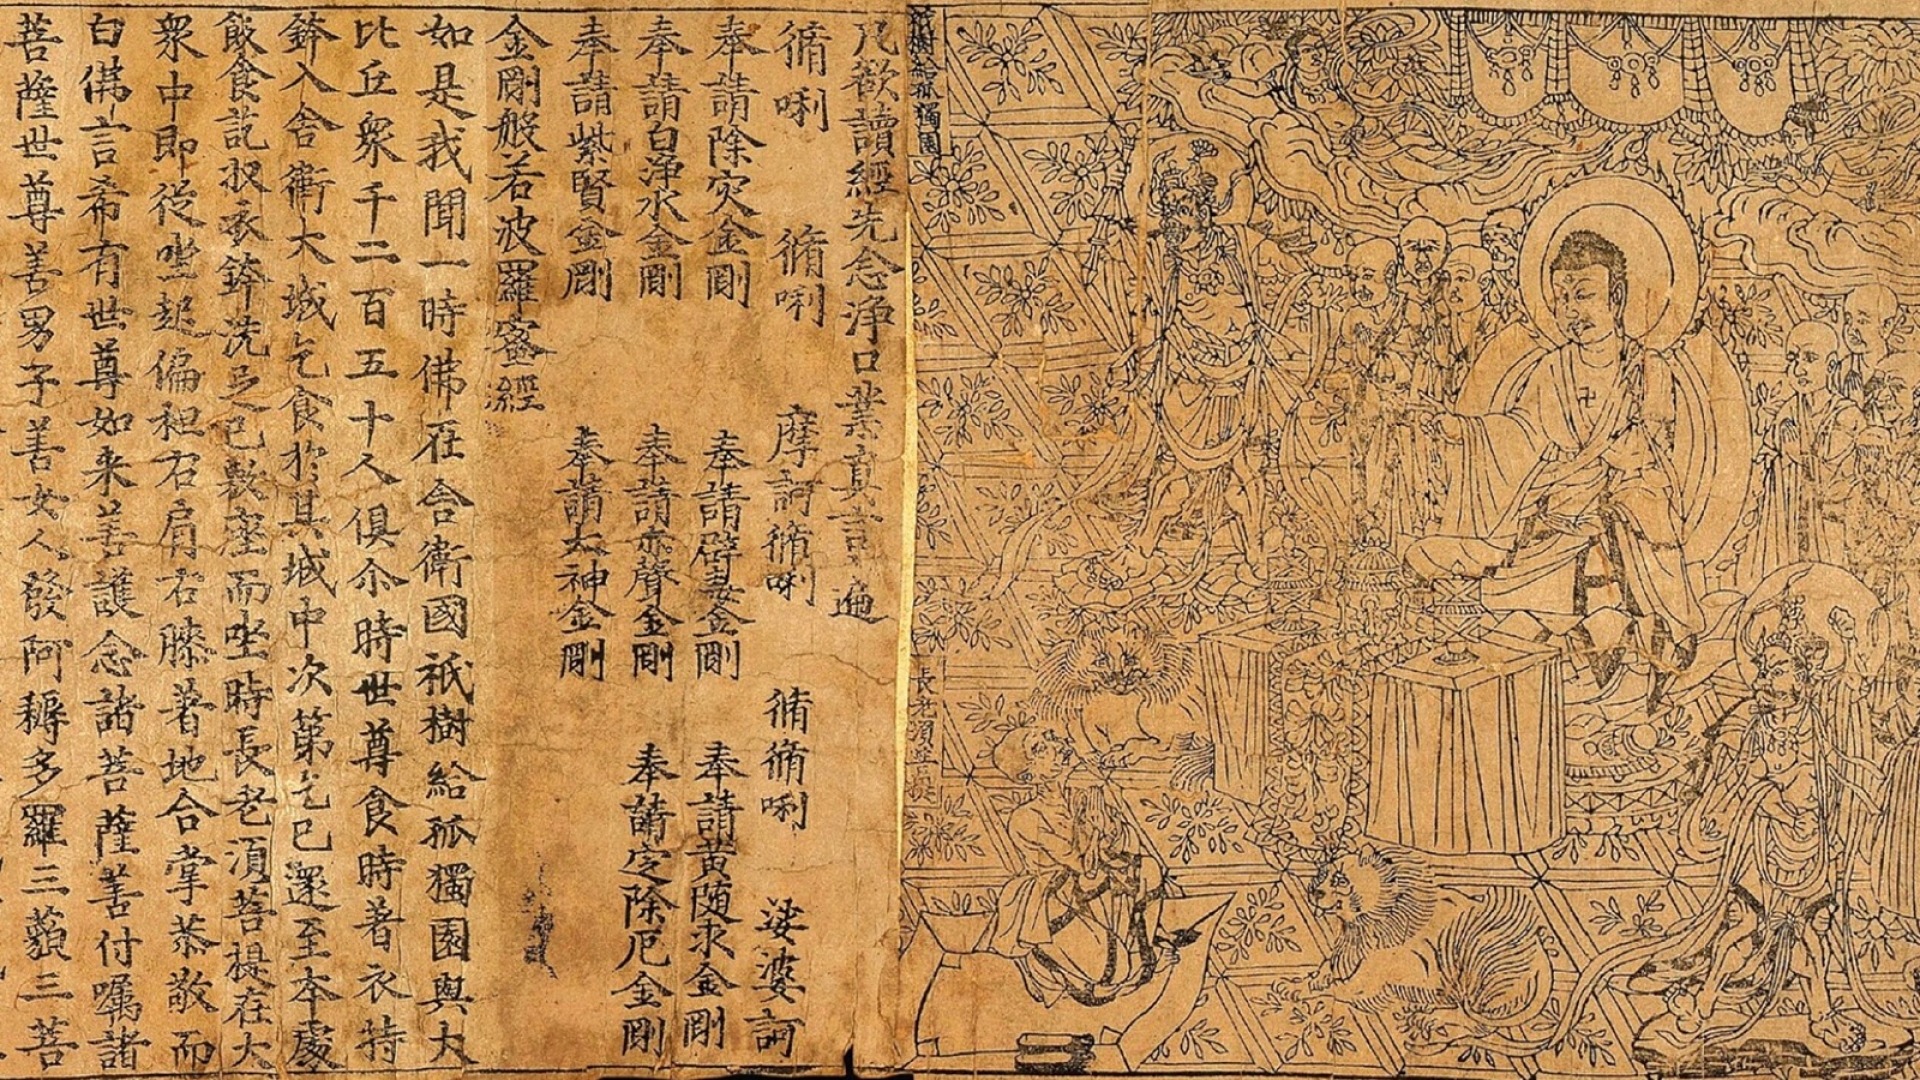 祇樹給孤獨園
長老須菩提
凡欲讀經先念淨口業真言一遍
脩唎 脩唎 摩訶脩唎 脩脩唎 娑婆訶
奉請除灾金剛 奉請辟毒金剛 奉請黃随求金剛
奉請白淨水金剛 奉請赤聲金剛 奉請定除厄金剛
奉請紫賢金剛 奉請大神金剛
金剛般若波羅蜜經
如是我聞一時佛在舍衛國祇樹給孤獨園與大
比丘衆千二百五十人俱尒時世尊食時著衣持
鉢入舍衛大城乞食於其城中次第乞已還至本處
飯食訖収衣鉢洗足已敷座而坐時長老須菩提在大
衆中即從坐起偏袒右肩右膝著地合掌恭敬而
白佛言希有世尊如来善護念諸菩薩善付囑諸
菩薩世尊善男子善女人發阿耨多羅三藐三菩